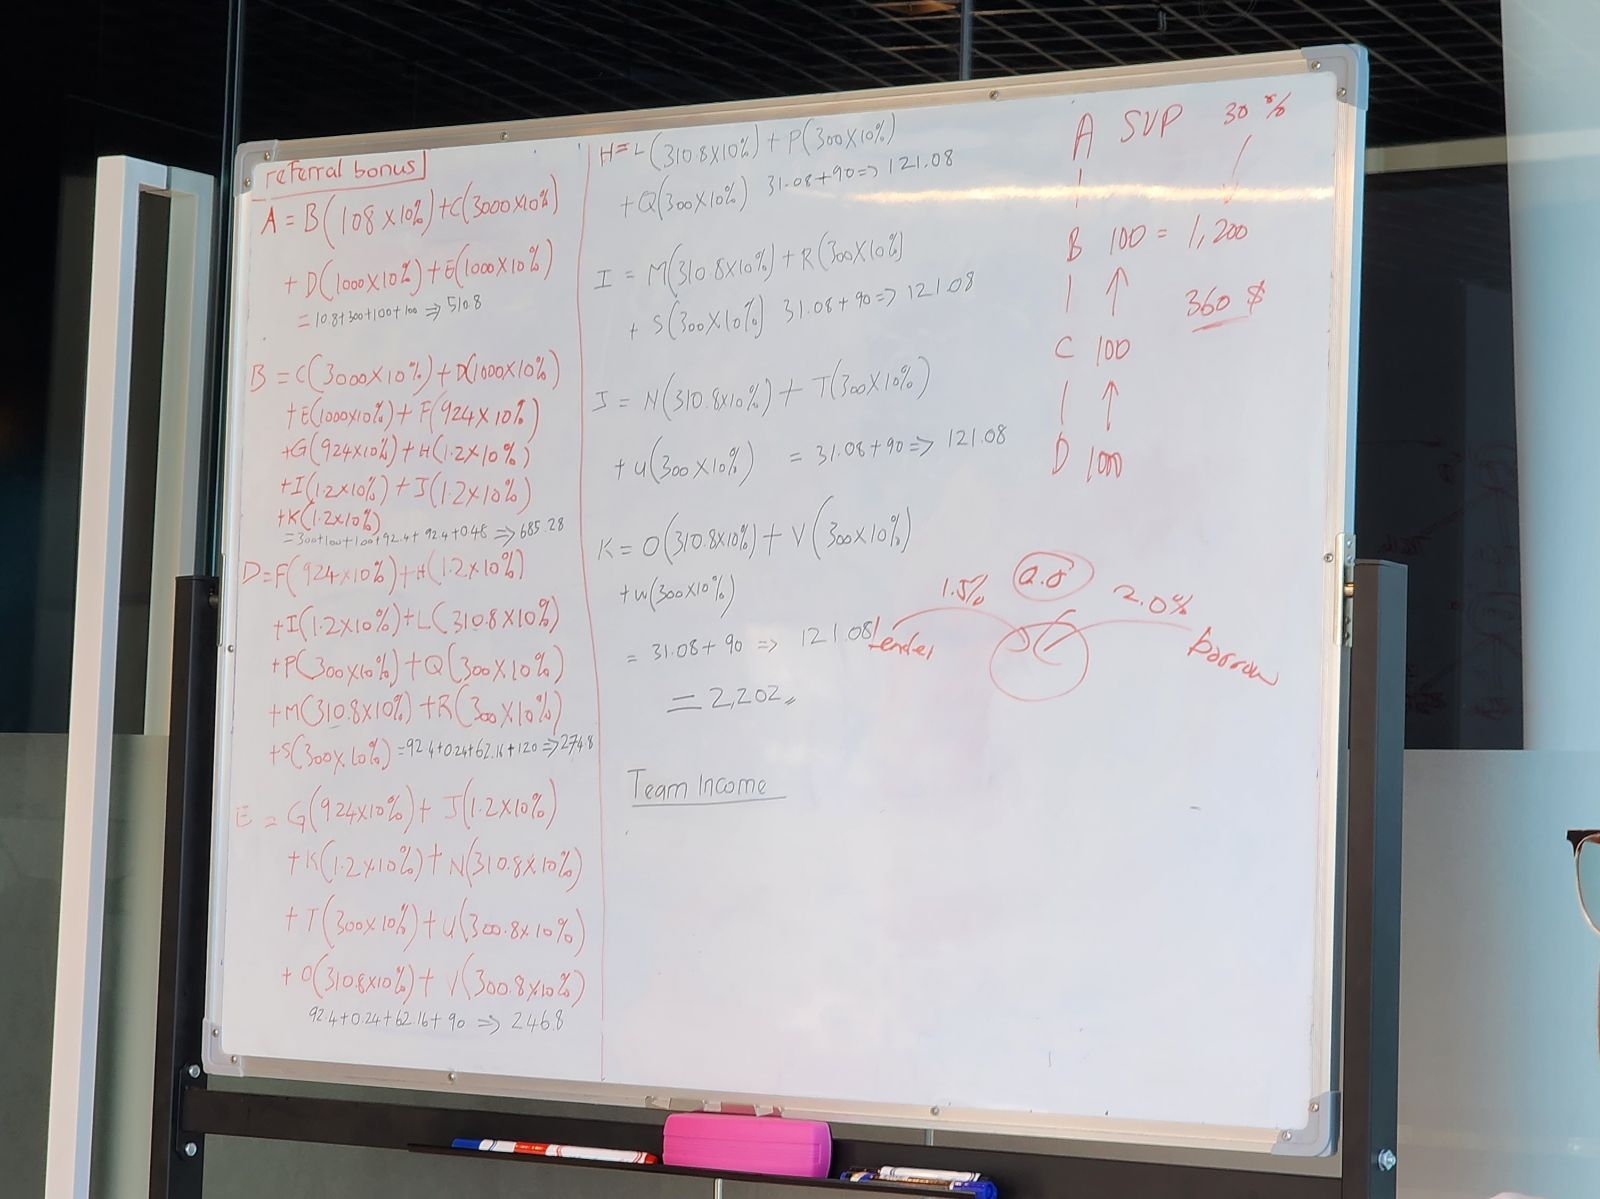 referral bonus
A = B(108 x 10%) + C(3000x10%)
+ D(1000x10%) + E(1000x10%)
= 10.8+300+100+100 ⇒ 510.8
B = C(3000x10%) + D(1000x10%)
+E(1000x10%) + F(924x10%)
+G(924x10%) + H(1.2x10%)
+I(1.2x10%) + J(1.2x10%)
+K(1.2x10%)
=300+100+100+92.4+92.4+0.48 ⇒ 685.28
D=F(924x10%)+H(1.2x10%)
+I(1.2x10%)+L(310.8x10%)
+P(300x10%)+Q(300x10%)
+M(310.8x10%)+R(300x10%)
+S(300x10%) =92.4+0.24+62.16+120 ⇒ 274.8
E = G(924x10%) + J(1.2x10%)
+K(1.2x10%)+N(310.8x10%)
+T(300x10%)+U(300.8x10%)
+O(310.8x10%)+V(300.8x10%)
92.4+0.24+62.16+90 ⇒ 246.8
H=L(310.8x10%)+P(300x10%)
+Q(300x10%) 31.08+90 ⇒ 121.08
I = M(310.8x10%)+R(300x10%)
+ S(300x10%) 31.08+90 ⇒ 121.08
J = N(310.8x10%) + T(300x10%)
+U(300x10%) = 31.08+90 ⇒ 121.08
K = O(310.8x10%) + V(300x10%)
+W(300x10%)
= 31.08+90 ⇒ 121.08
= 2,202
Team Income
A SVP 30%
B 100 = 1,200
360 $
C 100
D 100
1.5% 2.0%
Lender borrow